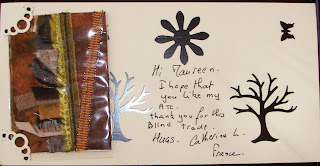 Hi Maureen.
I hope that
you like my
ATC.
thank you for this
Blind Trade.
Hugs. Catherine L.
France.